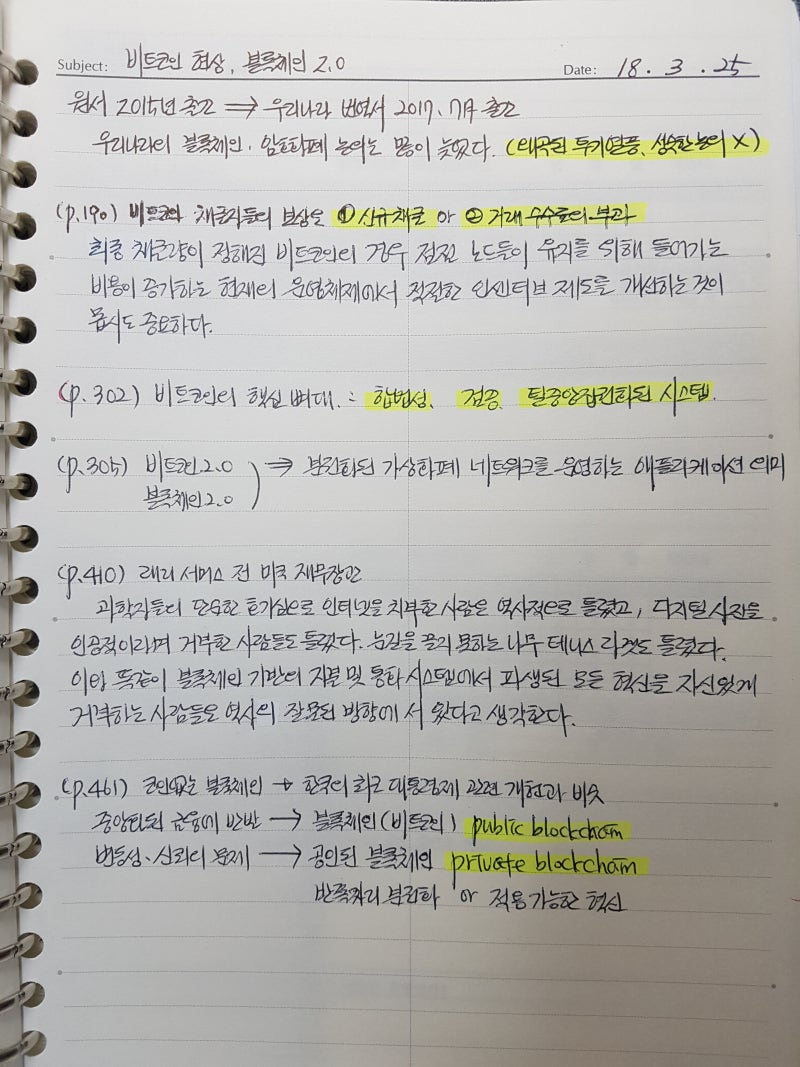 Subject: 비트코인 현상, 블록체인 2.0
Date: 18. 3. 25
원서 2015년 출간 ⇒ 우리나라 번역서 2017. 7月 출간
우리나라의 블록체인·암호화폐 논의는 많이 늦었다. (왜곡된 투기열풍, 성숙한 논의 X)
(p.190) 비트코인 채굴자들의 보상은 ① 신규채굴 or ② 거래 수수료의 부과
최종 채굴량이 정해진 비트코인의 경우 점점 노드들이 유지를 위해 들어가는
비용이 증가하는 현재의 운영체제에서 적절한 인센티브 제도를 개선하는 것이
몹시도 중요하다.
(p.302) 비트코인의 핵심 뼈대 : 합법성, 검증, 탈중앙집권화된 시스템.
(p.305) 비트코인 2.0
블록체인 2.0
⇒ 분권화된 가상화폐 네트워크를 운영하는 애플리케이션 의미
(p.410) 래리 서머스 전 미국 재무장관
과학자들의 단순한 호기심으로 인터넷을 치부한 사람은 역사적으로 틀렸고, 디지털 사진을
인공적이라며 거부한 사람들도 틀렸다. 눈길을 끌지 못하는 나무 테니스 라켓도 틀렸다.
이와 똑같이 블록체인 기반의 지불 및 통화 시스템에서 파생된 모든 혁신을 자신있게
거부하는 사람들도 역사의 잘못된 방향에 서 왔다고 생각한다.
(p.461) 코인없는 블록체인 → 한국의 최근 대통령제 관련 개헌과 비슷
중앙화된 금융에 반발 → 블록체인(비트코인) public blockchain
변동성·신뢰의 문제 → 공인된 블록체인 private blockchain
반쪽짜리 분권화 or 적용가능한 혁신